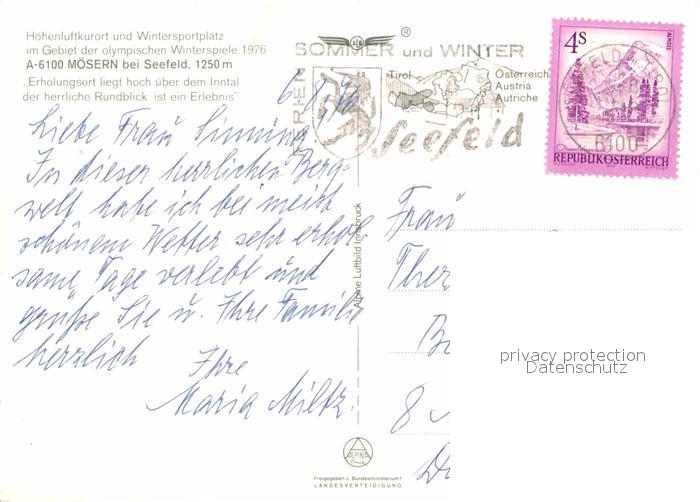 Höhenluftkurort und Wintersportplatz
im Gebiet der olympischen Winterspiele 1976
A-6100 MÖSERN bei Seefeld, 1250 m
„Erholungsort liegt hoch über dem Inntal
der herrliche Rundblick ist ein Erlebnis"
®
SOMMER und WINTER
Tirol
Österreich
Austria
Autriche
Seefeld
4S
ALMSEE
6100
REPUBLIK ÖSTERREICH
6.8.76
Liebe Frau
In dieser herrlichen Berg-
welt habe ich bei meist
schönem Wetter sehr erhol-
same Tage verlebt und
grüße Sie u. Ihre Familie
herzlich
Ihre
Maria Miltz.
Alpine Luftbild Innsbruck
Frau
Ther
B
8
privacy protection
Datenschutz
ALPINE
Freigegeben v. Bundesministerium f.
LANDESVERTEIDIGUNG